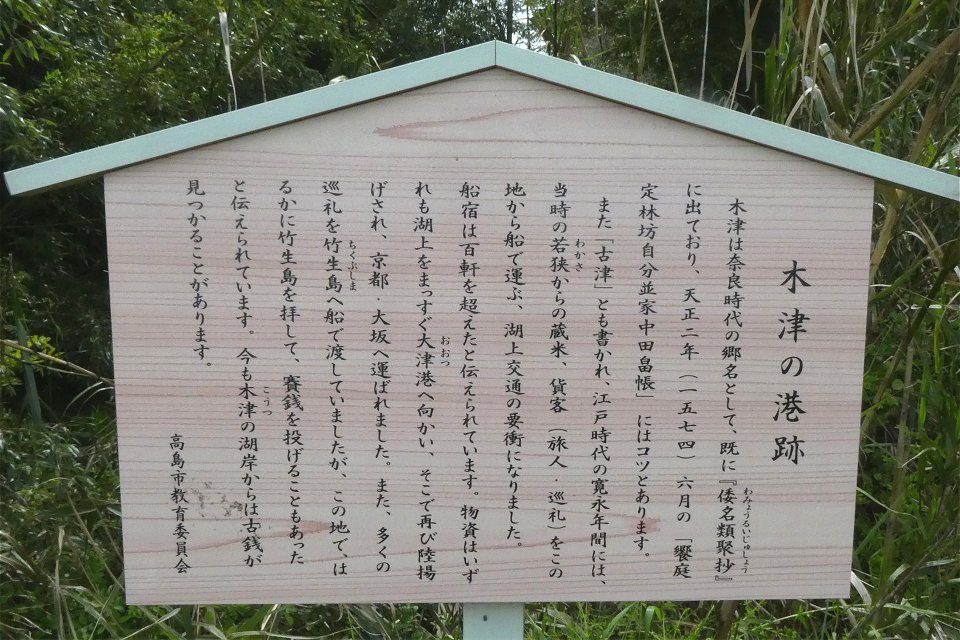 木津の港跡
木津は奈良時代の郷名として、既に『倭名類聚抄』
わみょうるいじゅしょう
に出ており、天正二年（一五七四）六月の「饗庭
定林坊自分並家中田畠帳」にはコツとあります。
また「古津」とも書かれ、江戸時代の寛永年間には、
当時の若狭からの蔵米、貨客（旅人・巡礼）をこの
わかさ
地から船で運ぶ、湖上交通の要衝になりました。
船宿は百軒を超えたと伝えられています。物資はいず
れも湖上をまっすぐ大津港へ向かい、そこで再び陸揚
おおつ
げされ、京都・大坂へ運ばれました。また、多くの
巡礼を竹生島へ船で渡していましたが、この地で、は
ちくぶしま
るかに竹生島を拝して、賽銭を投げることもあった
と伝えられています。今も木津の湖岸からは古銭が
こうつ
見つかることがあります。
高島市教育委員会